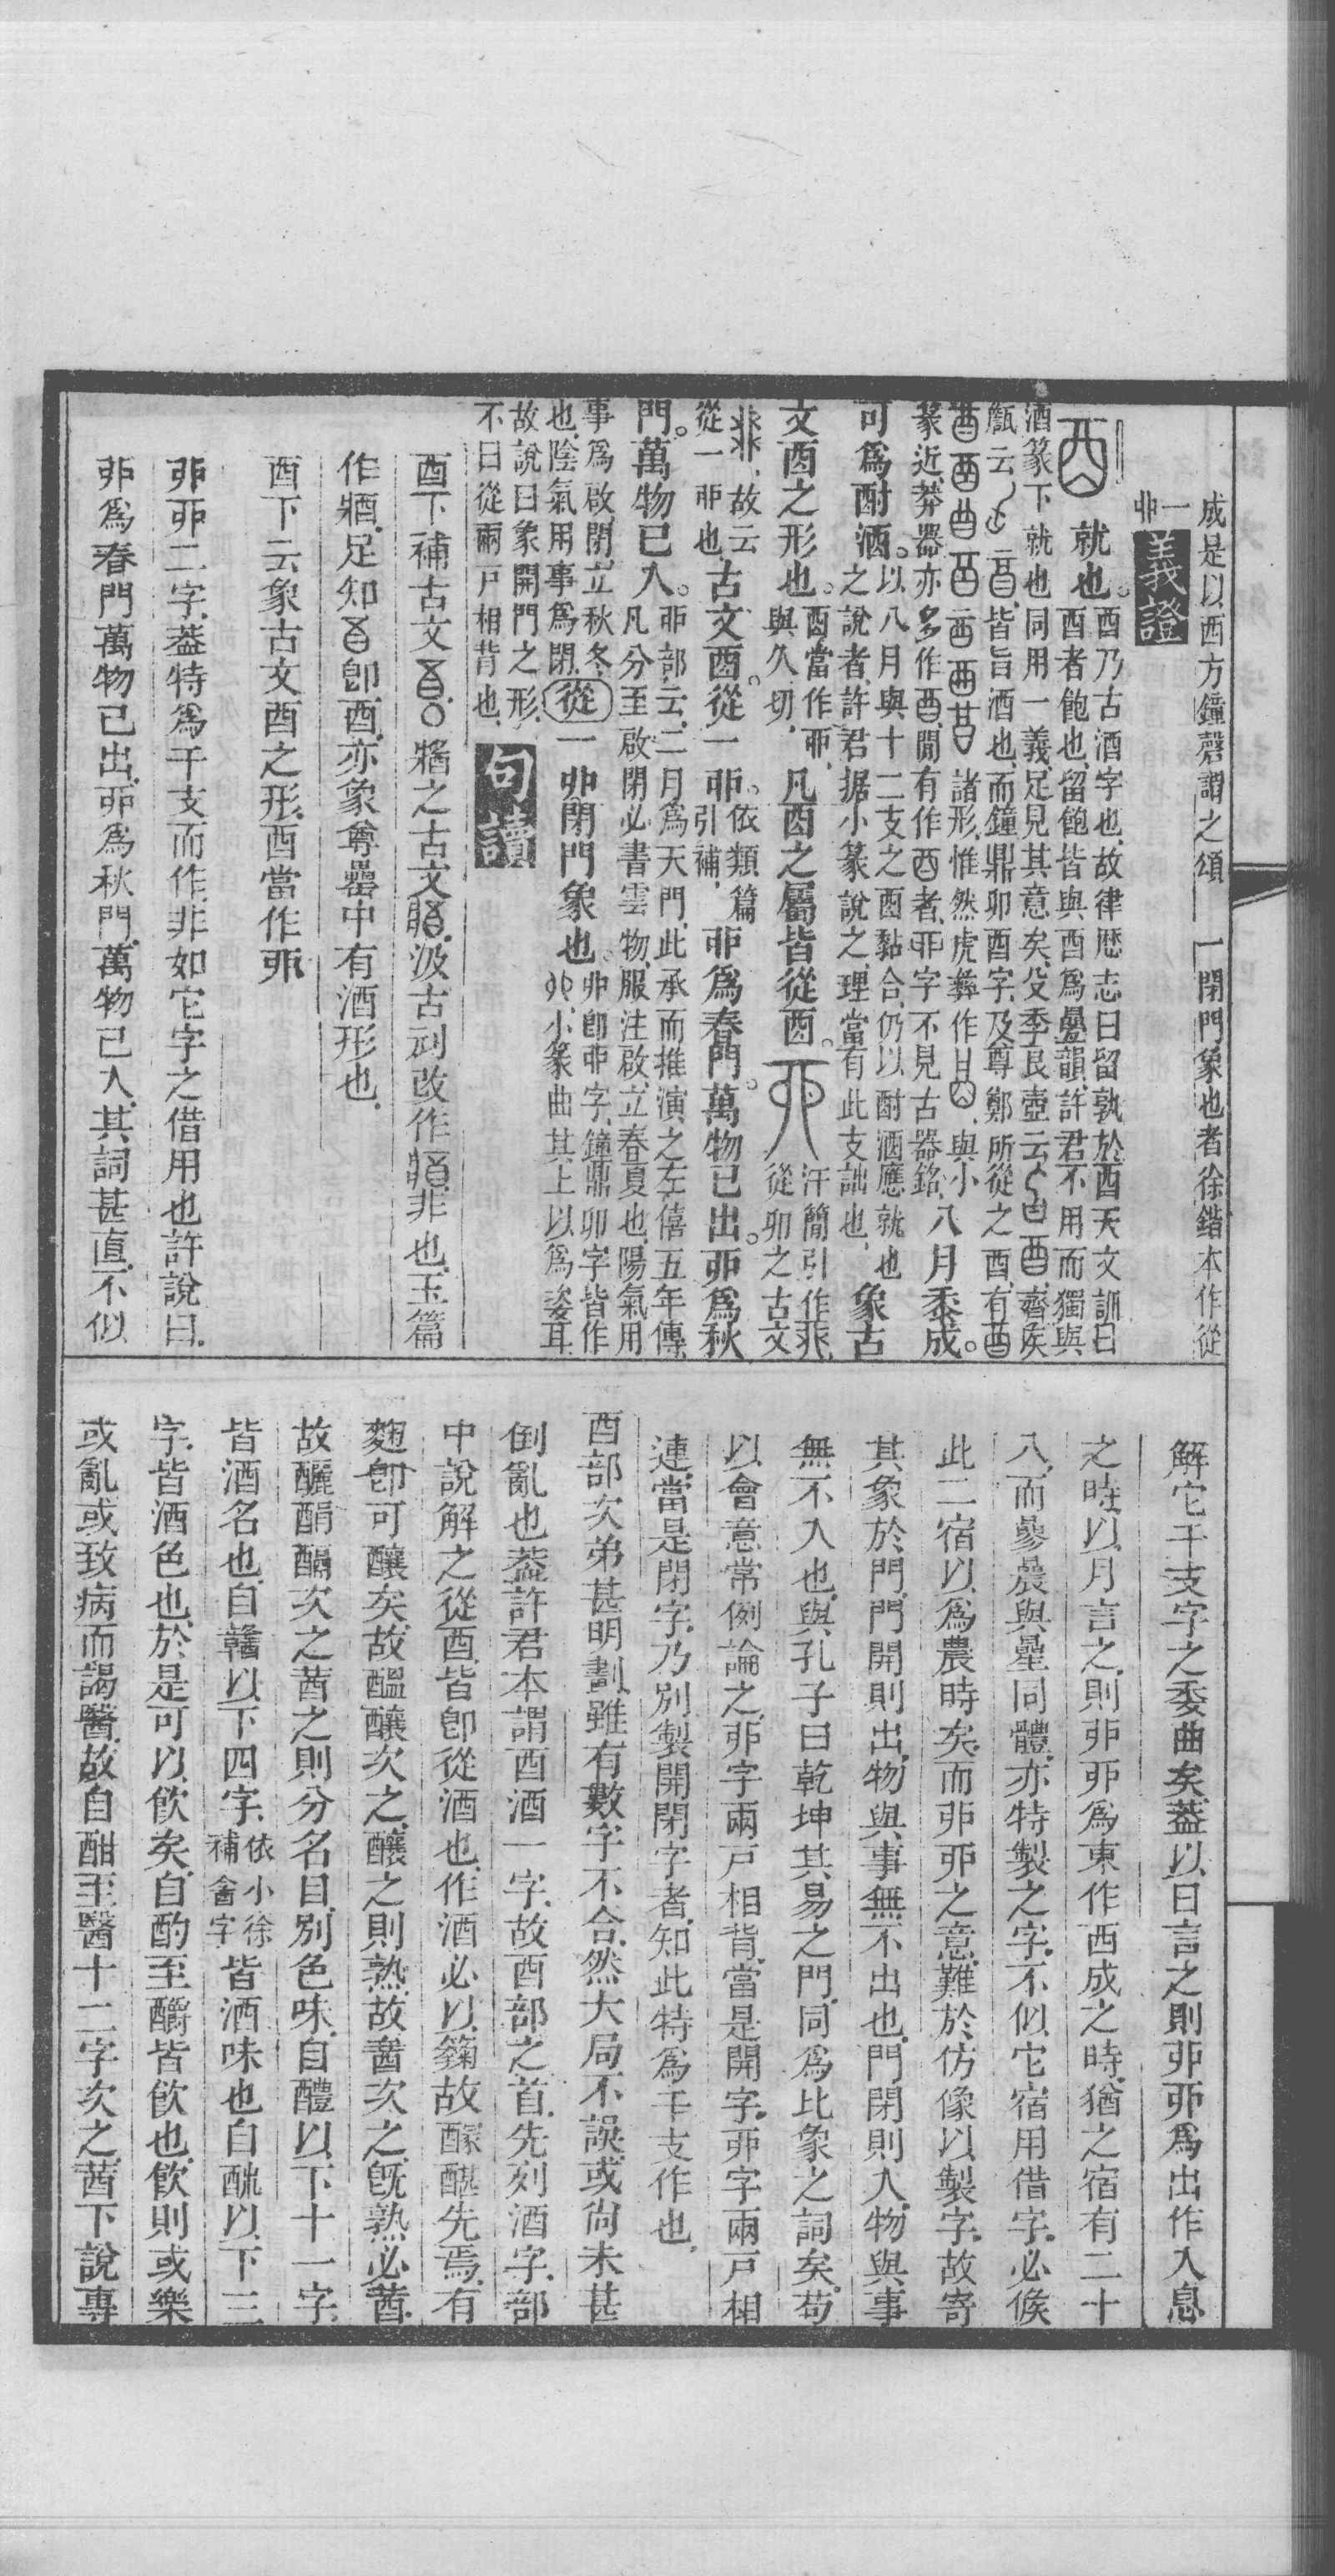 成是以西方鐘磬謂之頌　一閉門象也者徐鍇本作從
一丣義證
就也。酉乃古酒字也故律厤志曰留孰於酉天文訓曰
酉者飽也留飽皆與酉爲曡韻許君不用而獨與
酒篆下就也同用一義足見其意矣殳季良壺云酉齊矦
甔云皆旨酒也而鐘鼎卯酉字及尊鄭所從之酉有
諸形惟然虎彝作與小
篆近莽器亦多作酉閒有作酉者丣字不見古器銘八月黍成。
可爲酎酒。以八月與十二支之酉黏合仍以酎酒應就也
之說者許君据小篆說之理當有此支詘也象古
文酉之形也。酉當作丣
與久切凡酉之屬皆從酉。汗簡引作
從卯之古文
故云
從一丣也古文酉。從一丣。依類篇
引補丣爲春門。萬物已出。丣爲秋
門。萬物已入。丣部云二月爲天門此承而推演之左僖五年傳
凡分至啟閉必書雲物服注啟立春夏也陽氣用
事爲啟閉立秋冬
也陰氣用事爲閉從一丣閉門象也。丣卽丣字鐘鼎卯字皆作
小篆曲其上以爲姿耳
故說曰象開門之形
不曰從兩戶相背也句讀
酉下補古文○牆之古文汲古刓改作非也玉篇
作牆足知卽酉亦象尊罍中有酒形也
酉下云象古文酉之形酉當作丣
丣丣二字葢特爲干支而作非如它字之借用也許說曰
丣爲春門萬物已出丣爲秋門萬物已入其詞甚直不似
解它干支字之委曲矣葢以日言之則丣丣爲出作入息
之時以月言之則丣丣爲東作西成之時猶之宿有二十
八而曑曟與曐同體亦特製之字不似它宿用借字必候
此二宿以爲農時矣而丣丣之意難於仿像以製字故寄
其象於門門開則出物與事無不出也門閉則入物與事
無不入也與孔子曰乾坤其易之門同爲比象之詞矣苟
以會意常例論之丣字兩戶相背當是開字丣字兩戶相
連當是閉字乃別製開閉字者知此特爲干支作也
酉部次弟甚明劃雖有數字不合然大局不誤或尙未甚
倒亂也葢許君本謂酉酒一字故酉部之首先列酒字部
中說解之從酉皆卽從酒也作酒必以籟故醿醖先焉有
麴卽可釀矣故醞釀次之釀之則熟故酋次之旣熟必莤
故釃酮醨次之莤之則分名目別色味自醴以下十一字
皆酒名也自醰以下四字依小徐
補酓字皆酒味也自酏以下三
字皆酒色也於是可以飮矣自酌至醻皆飮也飮則或樂
或亂或致病而謁醫故自酣至醫十二字次之莤下說專